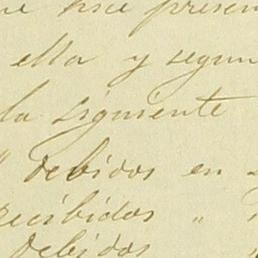 hice presen
ella y segun
la siguiente
" debidos en
recibidos "
debidos "